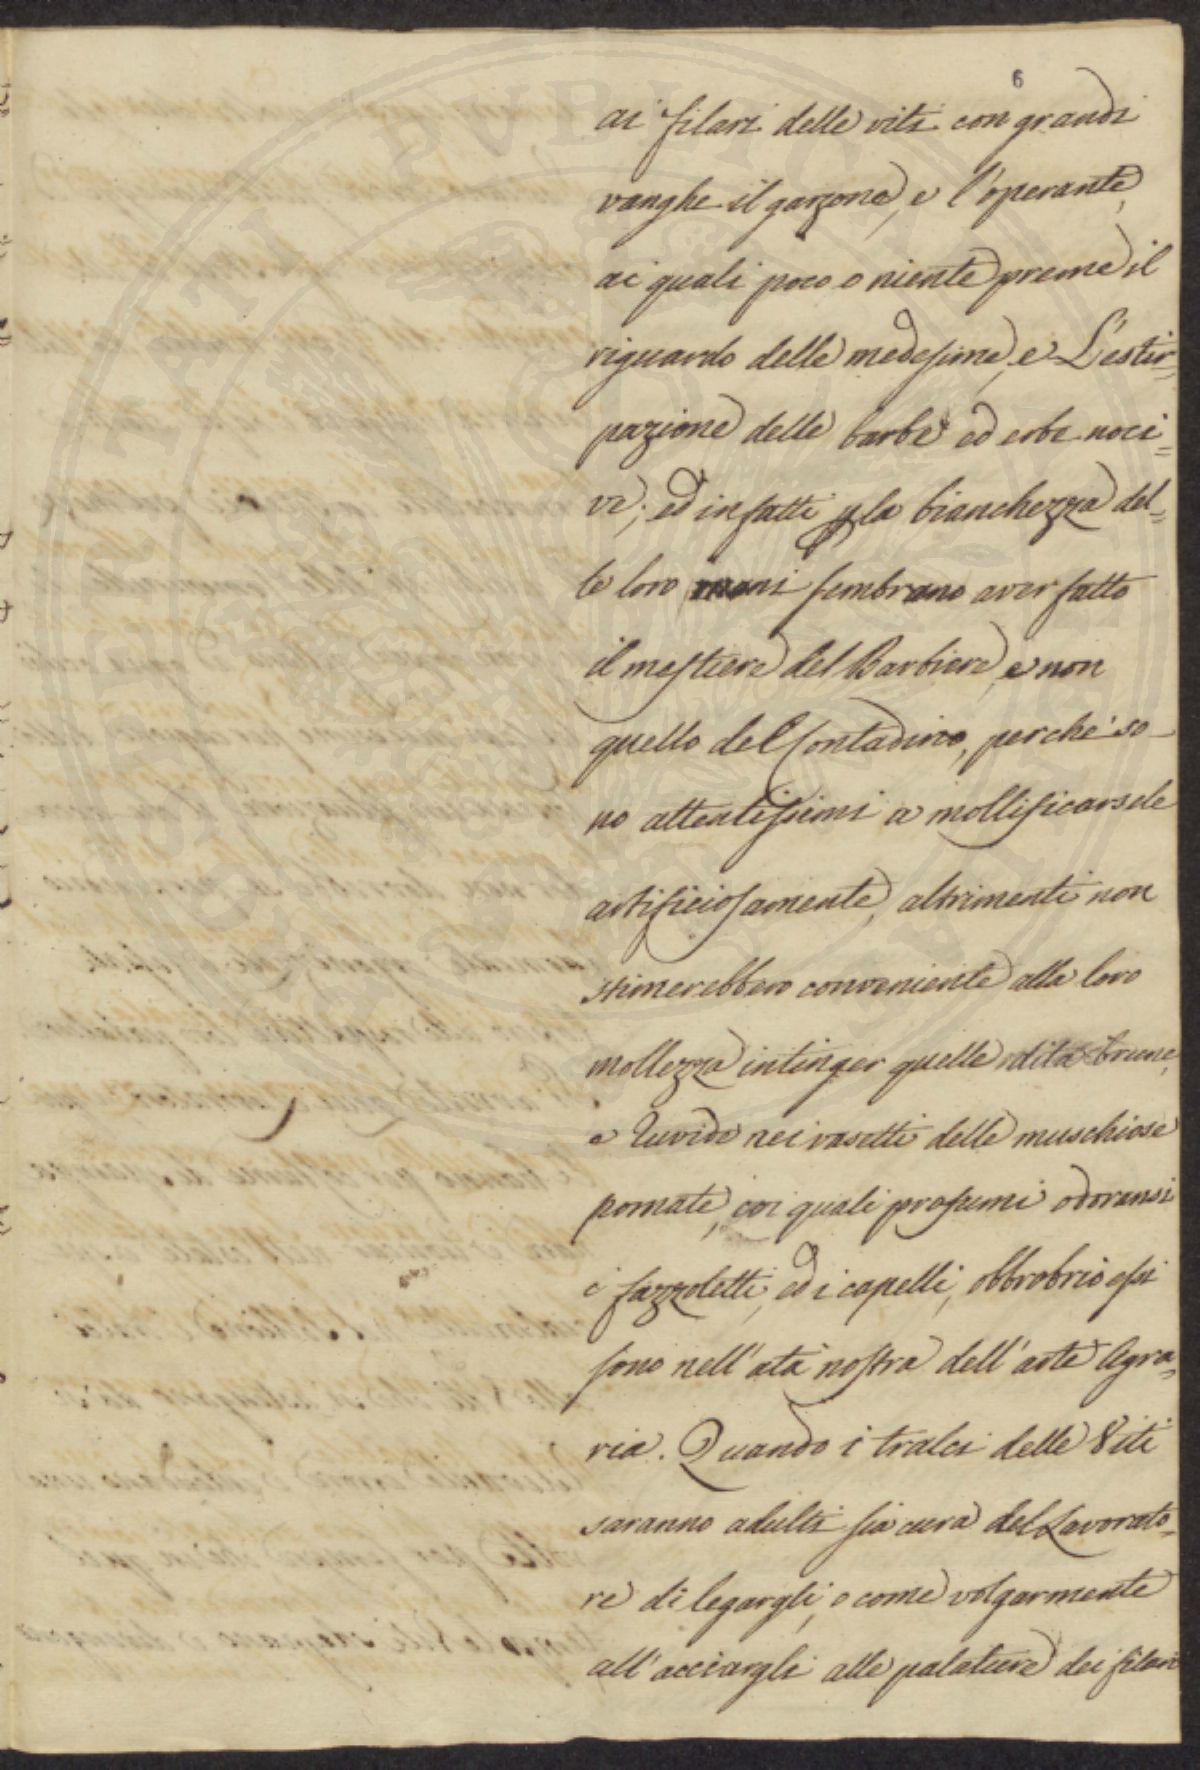 6
ai filari delle viti con grandi
vanghe il garzone, e l'operante,
ai quali poco o niente preme il
riguardo delle medesime, e L'estir=
pazione delle barbe ed erbe noci=
ve; ed infatti p la bianchezza del=
le loro mani sembrano aver fatto
il mestiere del Barbiere, e non
quello del Contadino, perche' so-
no attentissimi a mollificarsele
artificiosamente, altrimenti non
stimerebbero conveniente alla loro
mollezza intinger quelle dita brune,
e Ruvide nei vasetti delle muschiose
pomate, coi quali profumi odoransi
i fazzoletti, ed i capelli, obbrobrio essi
sono nell'età nostra dell'arte Agra=
ria. Quando i tralci delle Viti
saranno adulti sia cura del Lavorato=
re di legargli, o come volgarmente
all'acciargli alle palature dei filari